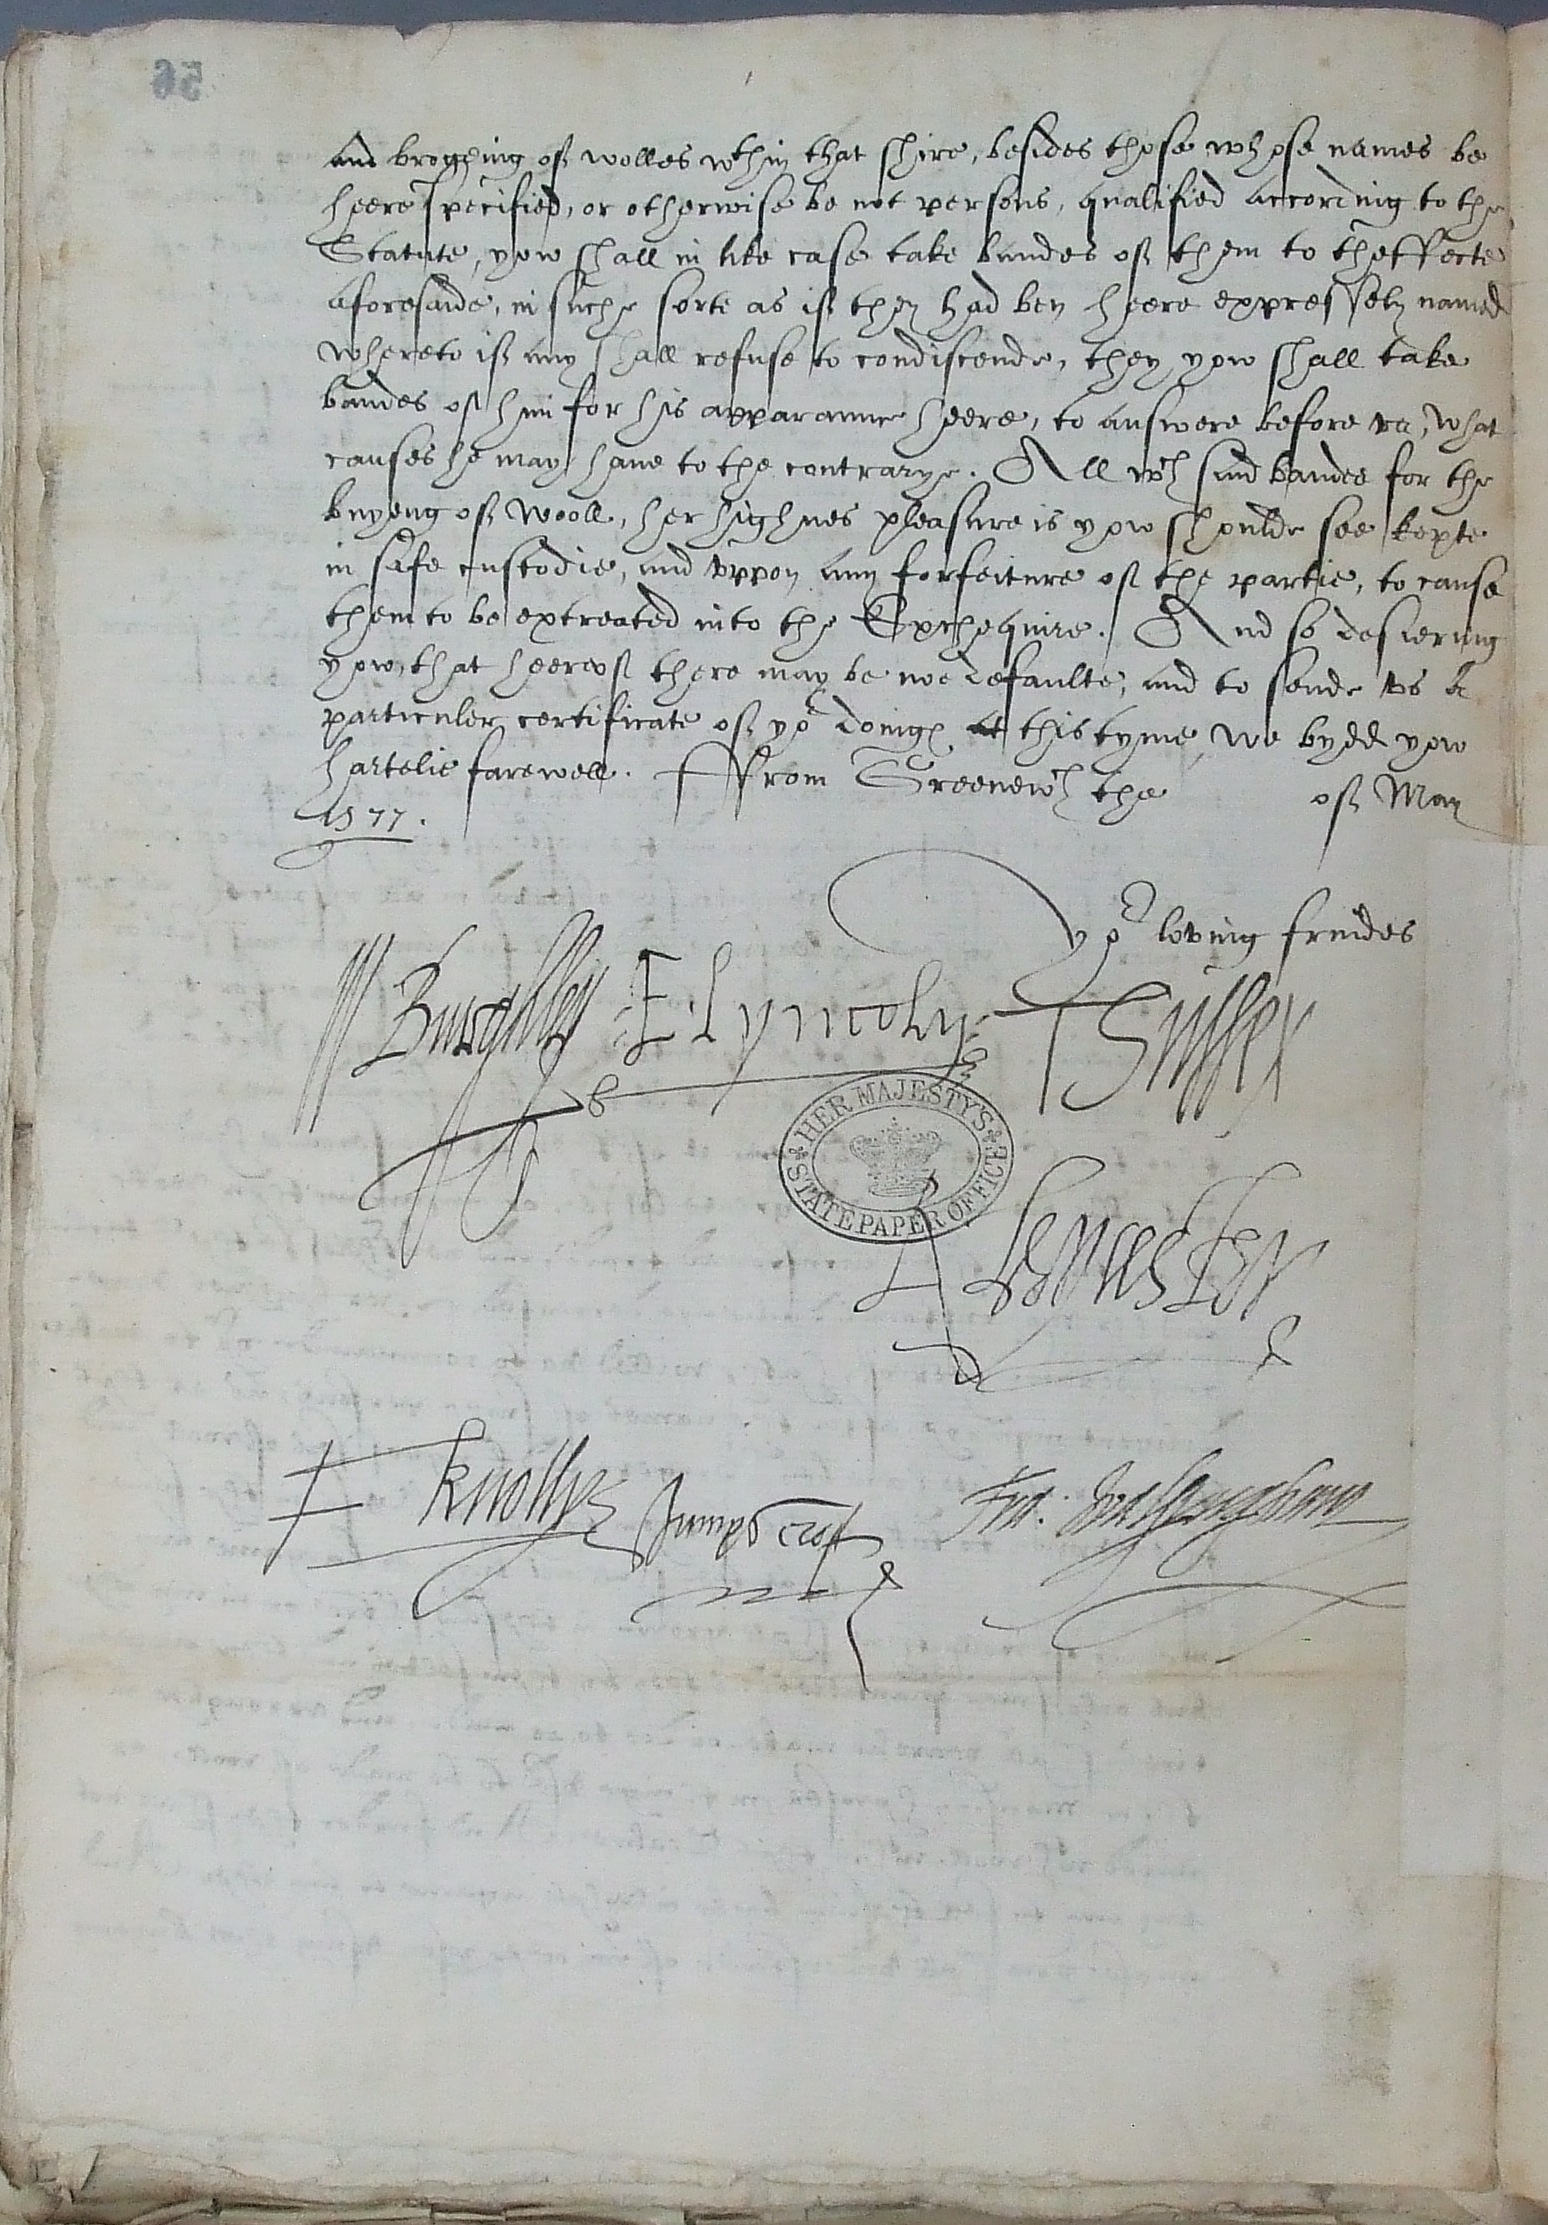 56
and broging of wolles wthin that shire, besides those whose names be
heere specified, or otherwise be not persons, qualified according to the
Statute, yow shall in like case take bandes of them to theffecte
aforesaide, in suche sorte as if they had ben heere expressely named
whereto if any shall refuse to condiscende, then yow shall take
bandes of him for his apparaunce heere, to answere before us, what
causes he may have to the contrarye. All wch said bandes for the
buyeng of wooll, her highnes pleasure is yow shoulde see kepte
in safe custodie, and uppon any forfeiture of the partie, to cause
them to be extreated into the Exchequire. And so desiering
yow, that heerof there may be noe defaulte, and to sende us a
particuler certificate of yor doinges at this tyme, we bydd yow
hartelie farewell. Ffrom Greenewch the of May
1577.
yor loving frindes
W Burghley E. Lyncoln T Sussex
HER MAJESTY'S STATE PAPER OFFICE
R Leycester
F Knollys James Croft Fra: Walsyngham